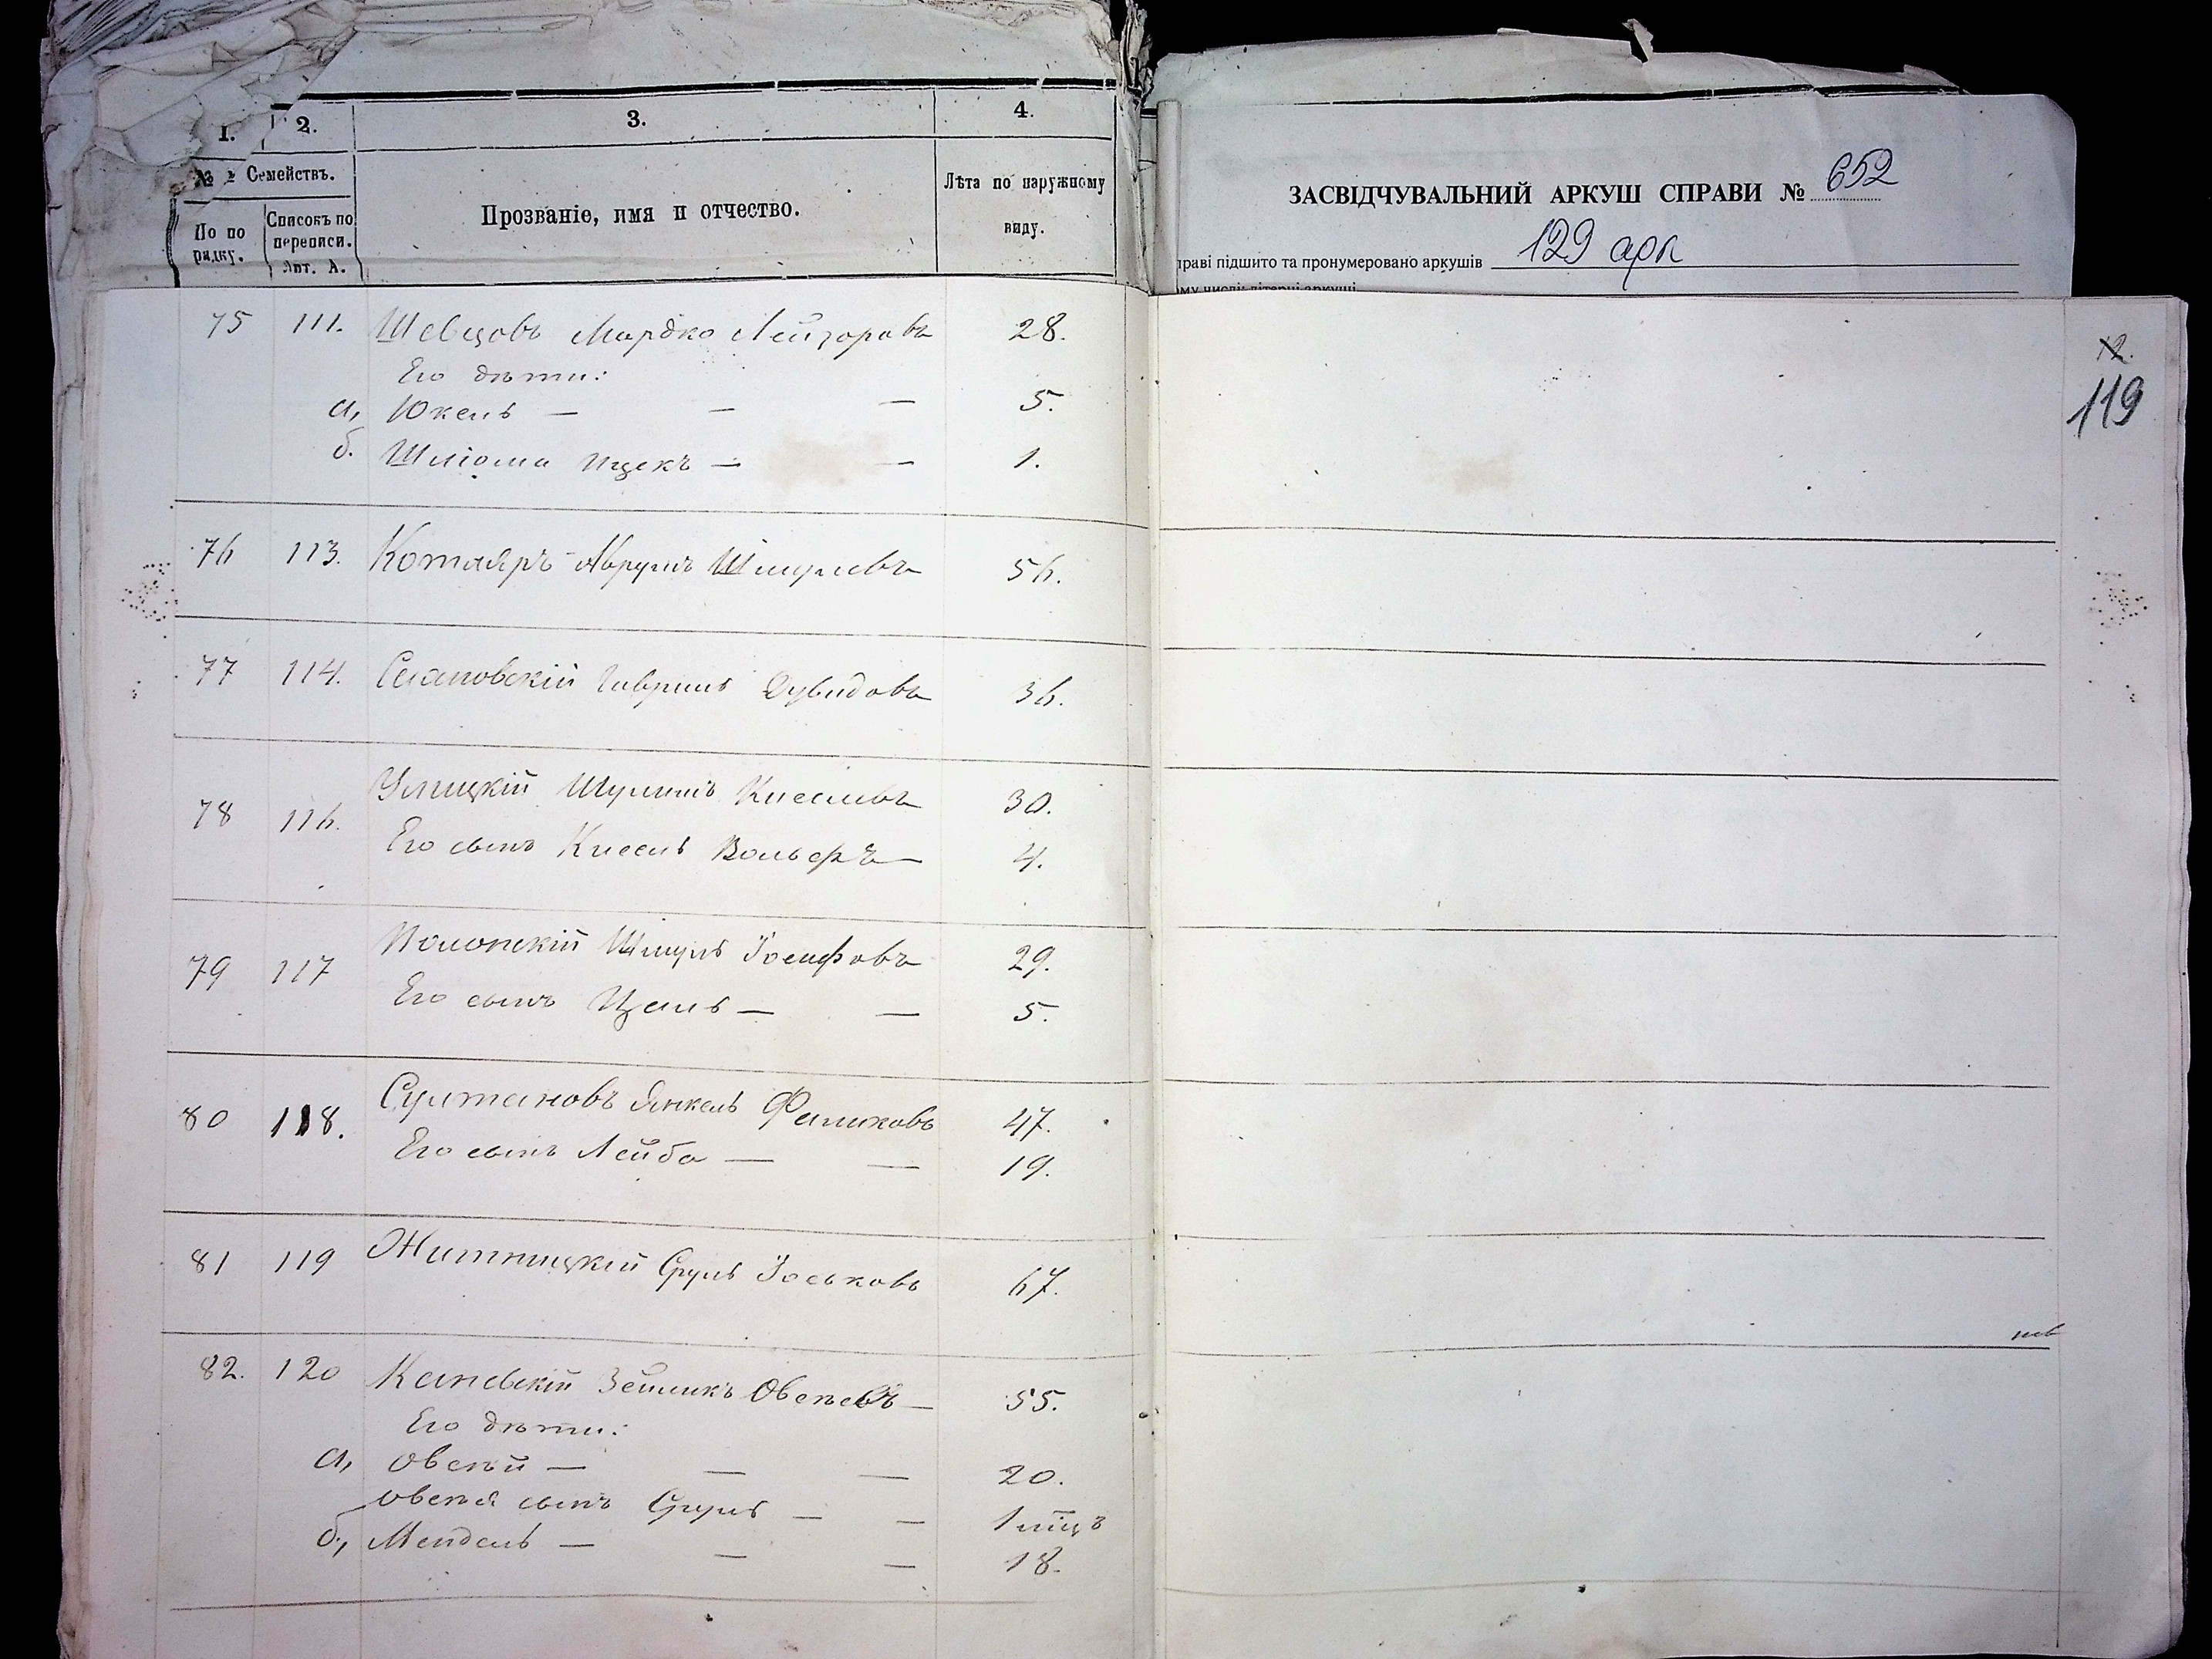 1. 2. 3. 4.
№ Семействъ.
По по рядку.
Списокъ по переписи. Лит. А.
Прозваніе, имя и отчество.
Лѣта по наружному виду.
ЗАСВІДЧУВАЛЬНИЙ АРКУШ СПРАВИ № 652
праві підшито та пронумеровано аркушів 129 арк
ому числі: літерні аркуші
12.
119
75 111. Шевцовъ Мордко Лейзоровъ 28.
Его дѣти:
а, Юкель — — — 5.
б. Шліома Ицекъ — — 1.
76 113. Котляръ Аврумъ Шмулевъ 56.
77 114. Гавриилъ Дувидовъ 36.
78 116. Улицкій Шулимъ Киселевъ 30.
Его сынъ Кисель Вольфъ — 4.
79 117 Полонскій Шмуль Іосифовъ 29.
Его сынъ — — 5.
80 118. Султановъ Янкель Фальковъ 47.
Его сынъ Лейба — — 19.
81 119 Житницкій Сруль Іоськовъ 67.
82. 120 Каневскій Зейликъ Овсеевъ — 55.
Его дѣти:
а, Овсѣй — — — 20.
Овсѣя сынъ Сруль — — 1 мѣц
б, Мендель — — — 18.